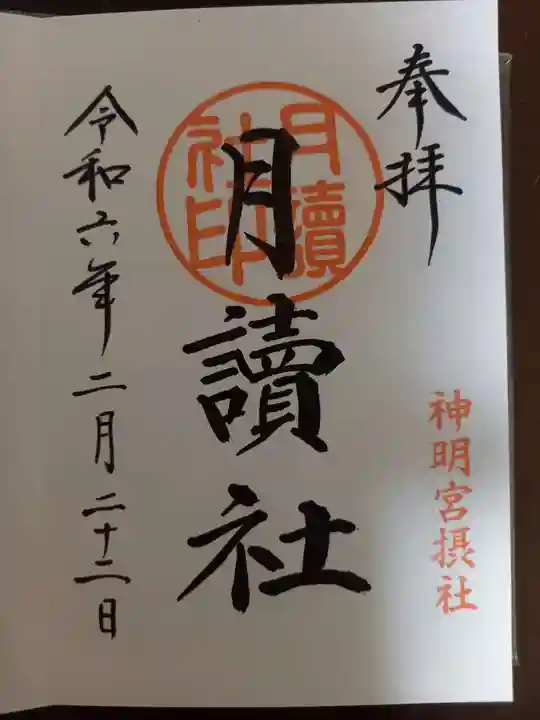 奉拝
神明宮摂社
月讀社印
月讀社
令和六年二月二十二日